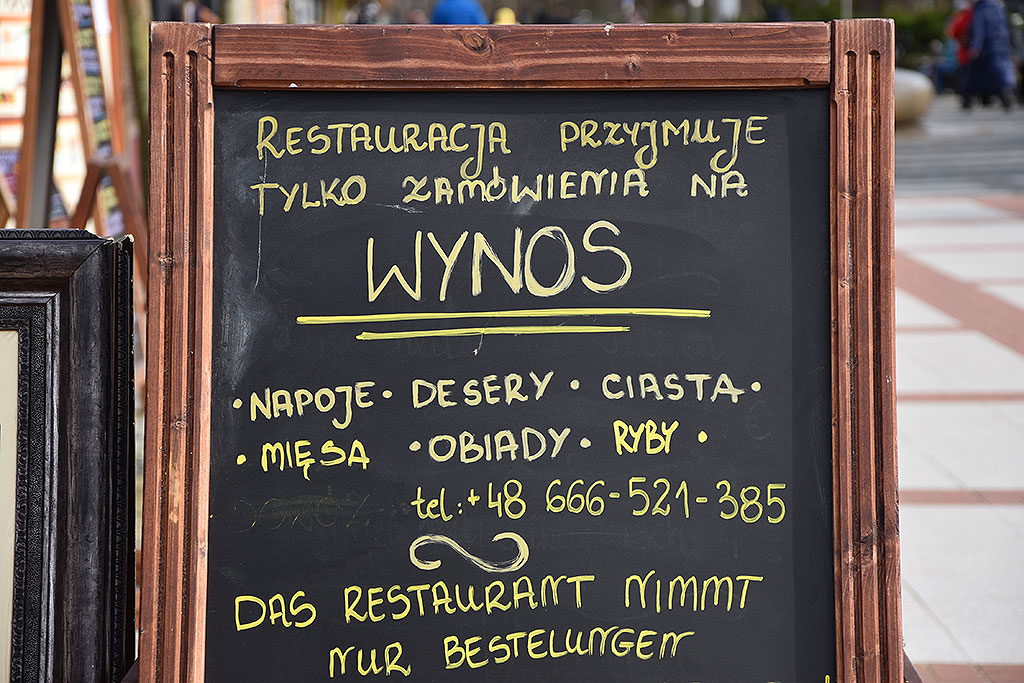 RESTAURACJA PRZYJMUJE
TYLKO ZAMÓWIENIA NA
WYNOS
• NAPOJE • DESERY • CIASTA •
• MIĘSA • OBIADY • RYBY •
tel.: +48 666-521-385
DAS RESTAURANT NIMMT
NUR BESTELUNGEN